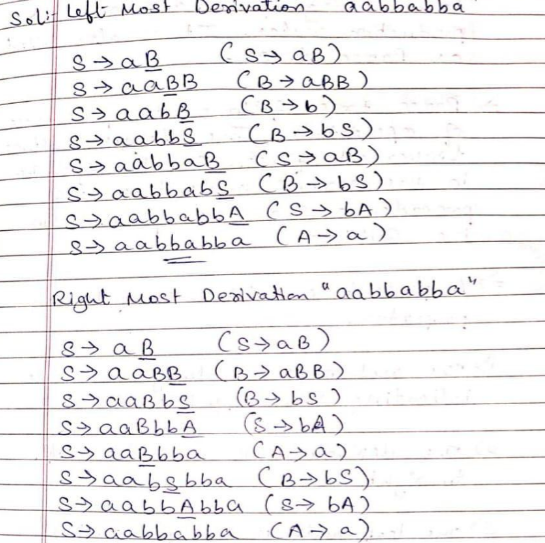 Sol:- Left Most Derivation aabbabba
S → aB (S → aB)
S → aaBB (B → aBB)
S → aabB (B → b)
S → aabbS (B → bS)
S → aabbaB (S → aB)
S → aabbabS (B → bS)
S → aabbabbA (S → bA)
S → aabbabba (A → a)
Right Most Derivation "aabbabba"
S → aB (S → aB)
S → aaBB (B → aBB)
S → aaBbS (B → bS)
S → aaBbbA (S → bA)
S → aaBbba (A → a)
S → aabSbba (B → bS)
S → aabbAbba (S → bA)
S → aabbabba (A → a)